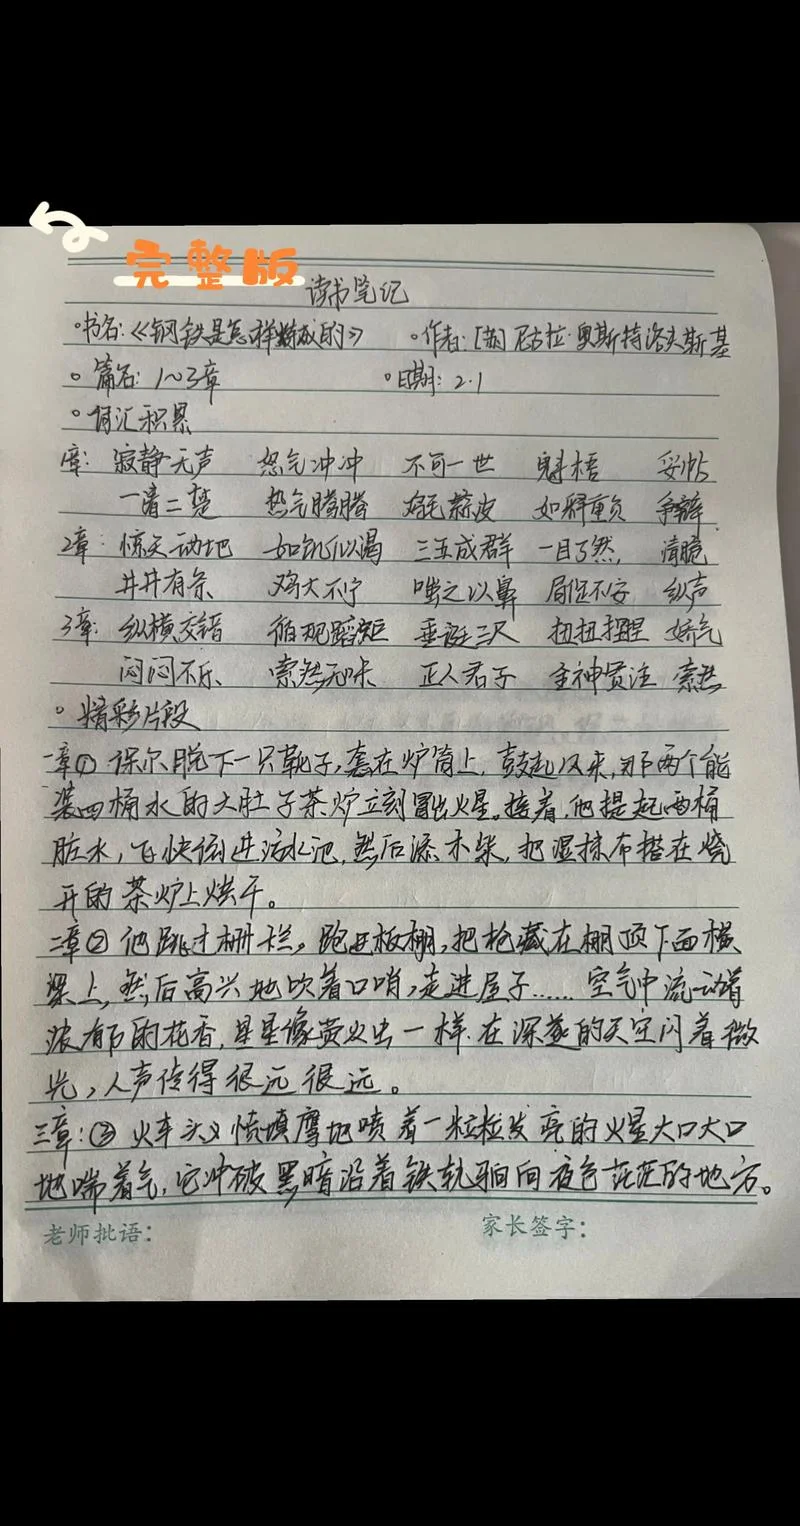 完整版
读书笔记
·书名:《钢铁是怎样炼成的》 ·作者:[苏]尼古拉·奥斯特洛夫斯基
·篇名:1～3章 ·日期:2.1
·词汇积累
1章: 寂静无声 怒气冲冲 不可一世 魁梧 妥帖
一清二楚 热气腾腾 鸡毛蒜皮 如释重负 争辩
2章: 惊天动地 如饥似渴 三五成群 一目了然 清脆
井井有条 鸡犬不宁 嗤之以鼻 局促不安 纵声
3章: 纵横交错 循规蹈矩 垂涎三尺 扭扭捏捏 娇气
闷闷不乐 索然无味 正人君子 全神贯注 索然
·精彩片段
一章① 保尔脱下一只靴子,套在炉筒上,鼓起风来,那两个能
装四桶水的大肚子茶炉立刻冒出火星。接着,他提起两桶
脏水,飞快倒进污水池,然后添木柴,把湿抹布搭在烧
开的茶炉上烘干。
二章② 他跳过栅栏,跑进板棚,把枪藏在棚顶下面横
梁上,然后高兴地吹着口哨,走进屋子……空气中流动着
浓郁的花香,星星像萤火虫一样在深邃的天空闪着微
光,人声传得很远很远。
三章:③ 火车头义愤填膺地喷着一粒粒发亮的火星大口大口
地喘着气,它冲破黑暗沿着铁轨驶向夜色茫茫的地方。
老师批语: 家长签字: